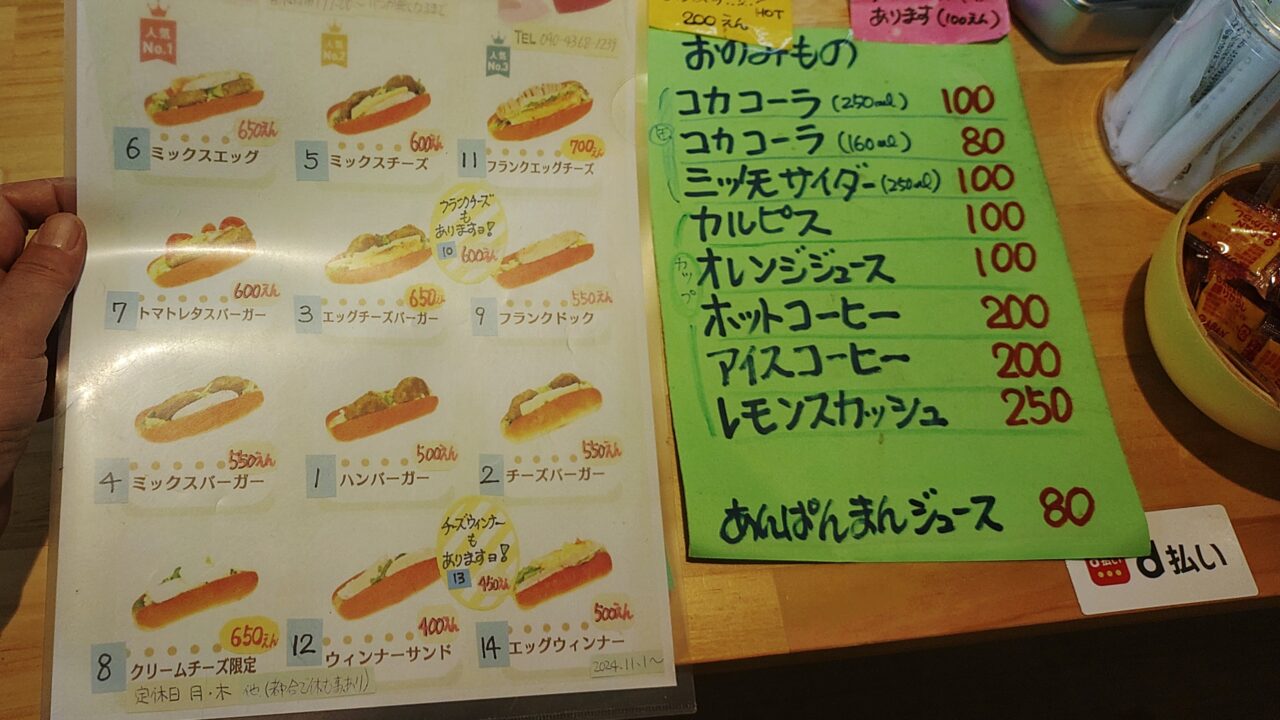 人気
No.1
人気
No.2
人気
No.3
TEL 090-4368-1239
6 ミックスエッグ 650えん
5 ミックスチーズ 600えん
11 フランクエッグチーズ 700えん
7 トマトレタスバーガー 600えん
3 エッグチーズバーガー 650えん
フランクチーズ
も
あります日!
10 600えん
9 フランクドック 550えん
4 ミックスバーガー 550えん
1 ハンバーガー 500えん
2 チーズバーガー 550えん
8 クリームチーズ限定 650えん
12 ウィンナーサンド 400えん
チーズウィンナー
も
あります日!
13 450えん
14 エッグウィンナー 500えん
2024.11.1〜
定休日 月・木 他(都合で休も有あり)
200えん HOT
あります(100えん)
おのみもの
コカコーラ(250ml) 100
コカコーラ(160ml) 80
三ツ矢サイダー(250ml) 100
カルピス 100
カップ
オレンジジュース 100
ホットコーヒー 200
アイスコーヒー 200
レモンスカッシュ 250
あんぱんまんジュース 80
d払い